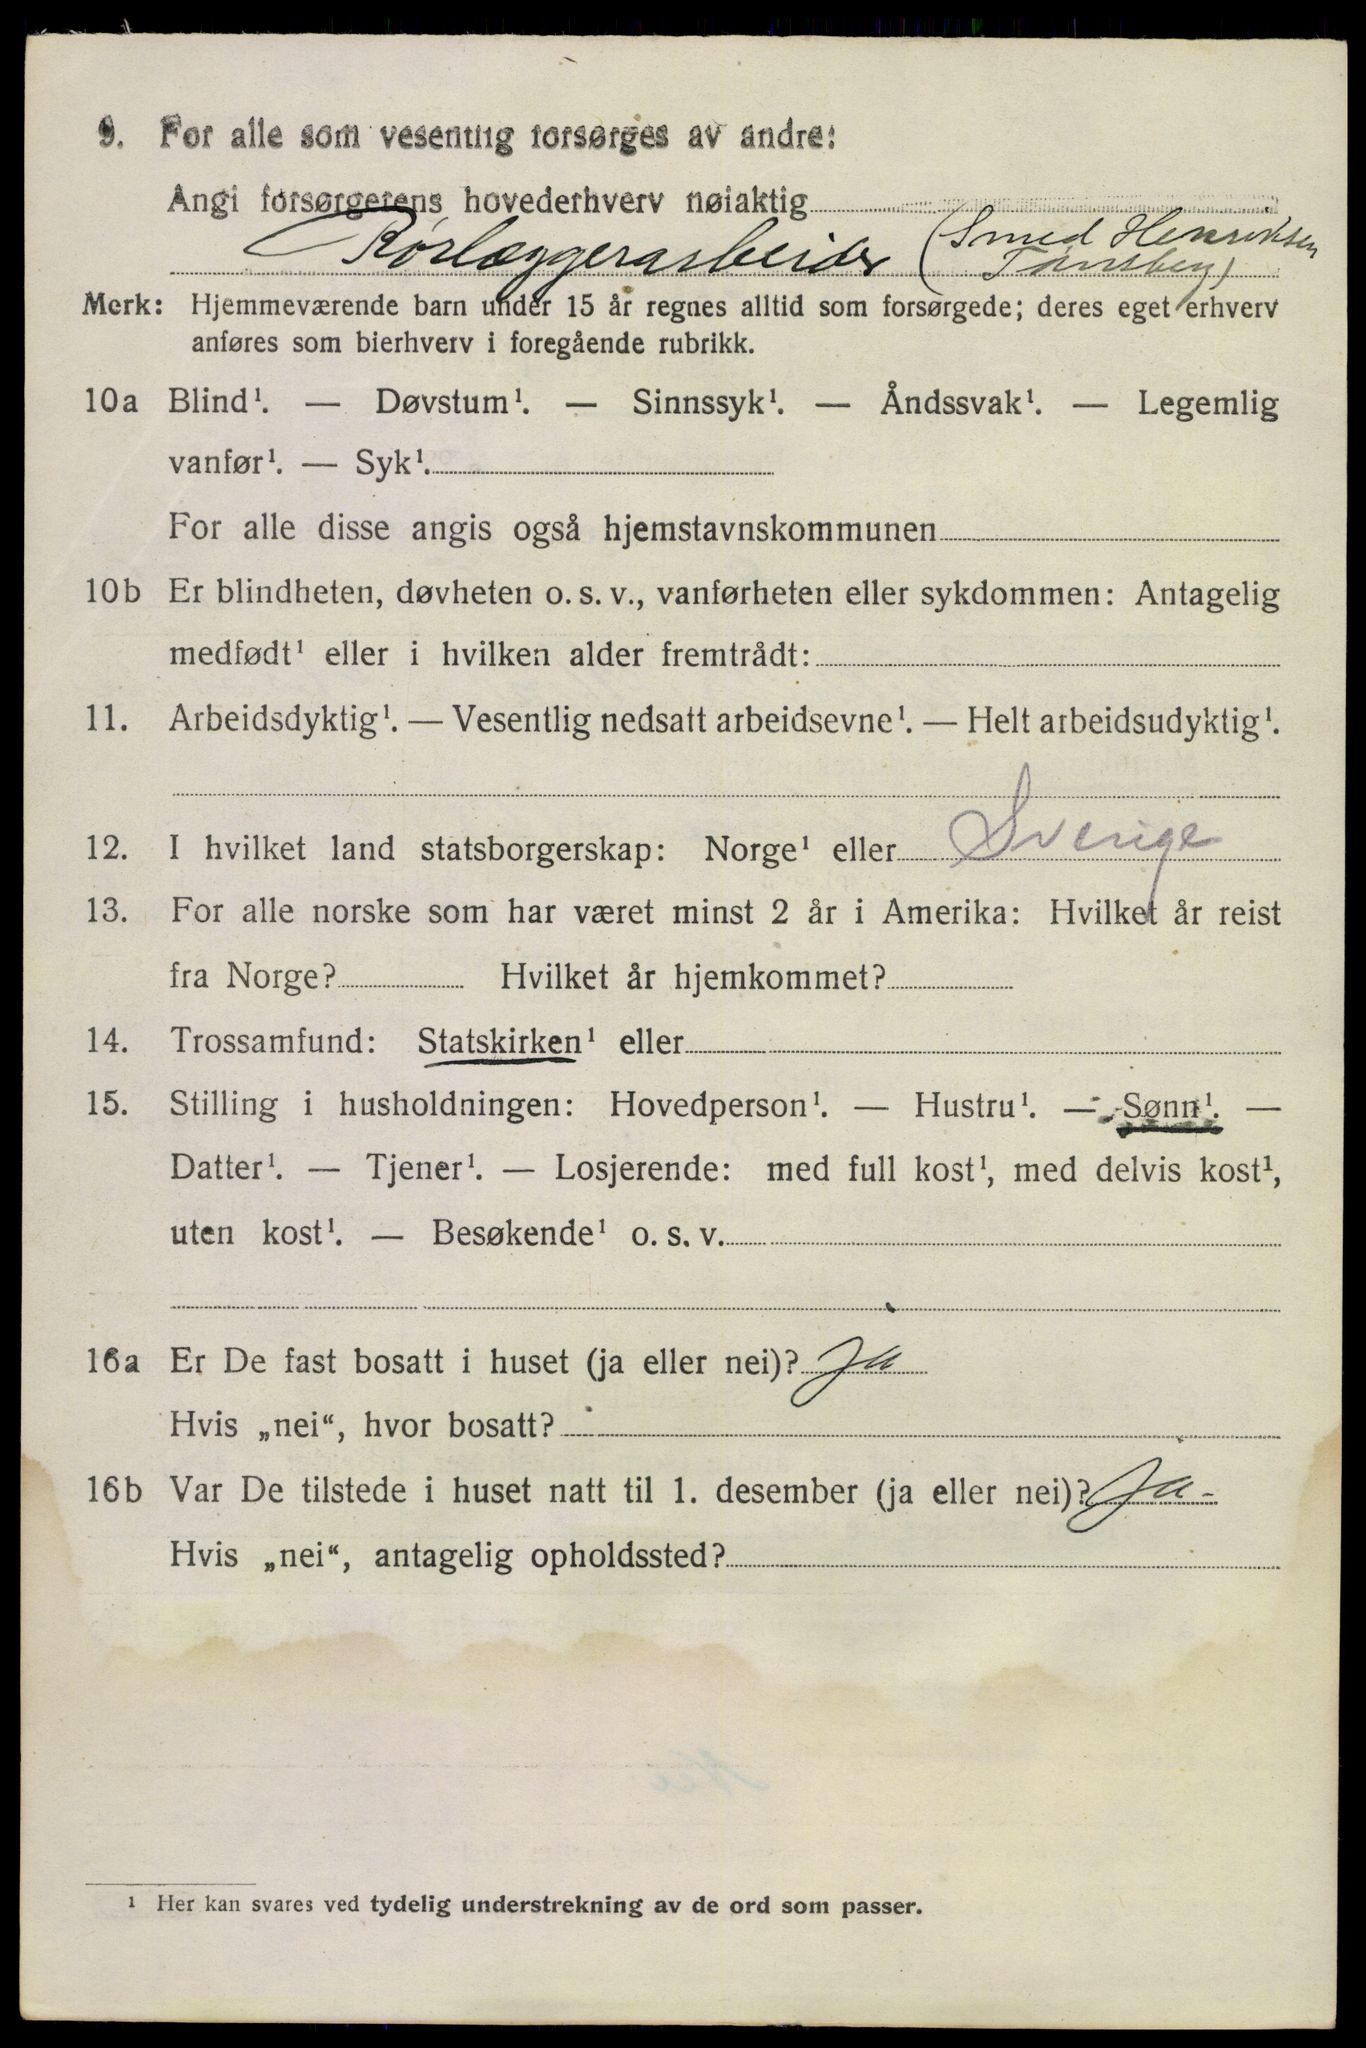 9. For alle som vesentlig forsørges av andre:
Angi forsørgerens hovederhverv nøiaktig
Rørlæggerarbeider (Smed Henriksen
Tønsberg)
Merk: Hjemmeværende barn under 15 år regnes alltid som forsørgede; deres eget erhverv
anføres som bierhverv i foregående rubrikk.
10a Blind¹. — Døvstum¹. — Sinnssyk¹. — Åndssvak¹. — Legemlig
vanfør¹. — Syk¹.
For alle disse angis også hjemstavnskommunen
10b Er blindheten, døvheten o. s. v., vanførheten eller sykdommen: Antagelig
medfødt¹ eller i hvilken alder fremtrådt:
11. Arbeidsdyktig¹. — Vesentlig nedsatt arbeidsevne¹. — Helt arbeidsudyktig¹.
12. I hvilket land statsborgerskap: Norge¹ eller Sverige
13. For alle norske som har været minst 2 år i Amerika: Hvilket år reist
fra Norge? Hvilket år hjemkommet?
14. Trossamfund: Statskirken¹ eller
15. Stilling i husholdningen: Hovedperson¹. — Hustru¹. — Sønn¹. —
Datter¹. — Tjener¹. — Losjerende: med full kost¹, med delvis kost¹,
uten kost¹. — Besøkende¹ o. s. v.
16a Er De fast bosatt i huset (ja eller nei)? Ja
Hvis „nei“, hvor bosatt?
16b Var De tilstede i huset natt til 1. desember (ja eller nei)? Ja-
Hvis „nei“, antagelig opholdssted?
¹ Her kan svares ved tydelig understrekning av de ord som passer.